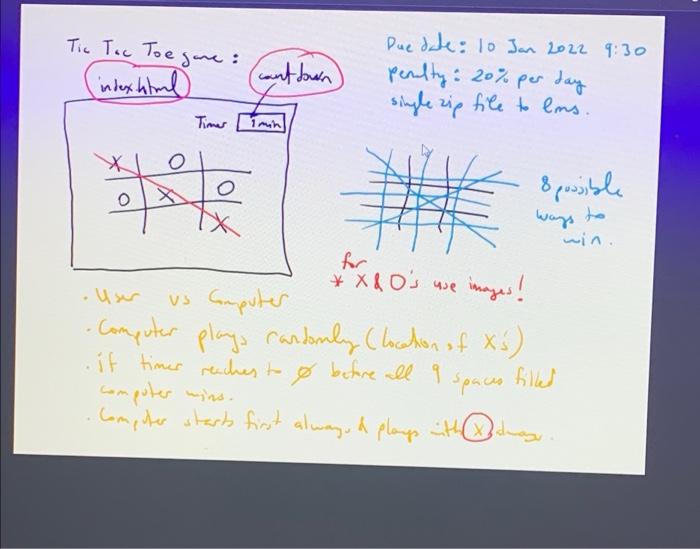 Tic Tac Toe game :
index.html
count down
Timer 1 min
X O
O X O
X
Due date: 10 Jan 2022 9:30
penalty: 20% per day
single zip file to lms.
8 possible
ways to
win.
for
* X & O's use images!
. User vs Computer
. Computer plays randomly (location of X's)
. if timer reaches to 0 before all 9 spaces filled
computer wins.
. Computer starts first always & plays with X always.